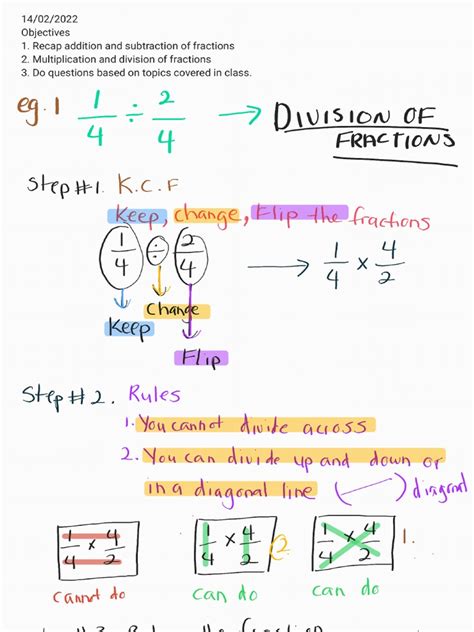 14/02/2022
Objectives
1. Recap addition and subtraction of fractions
2. Multiplication and division of fractions
3. Do questions based on topics covered in class.
eg.1 1/4 ÷ 2/4 → DIVISION OF
FRACTIONS
Step #1. K.C.F
Keep, change, Flip the fractions
1/4 ÷ 2/4 → 1/4 × 4/2
Change
Keep
Flip
Step #2. Rules
1. You cannot divide across
2. You can divide up and down or
in a diagonal line ( ) diagonal
1/4 × 4/2 1/4 × 4/2 2. 1/4 × 4/2 1.
cannot do can do can do
the fraction